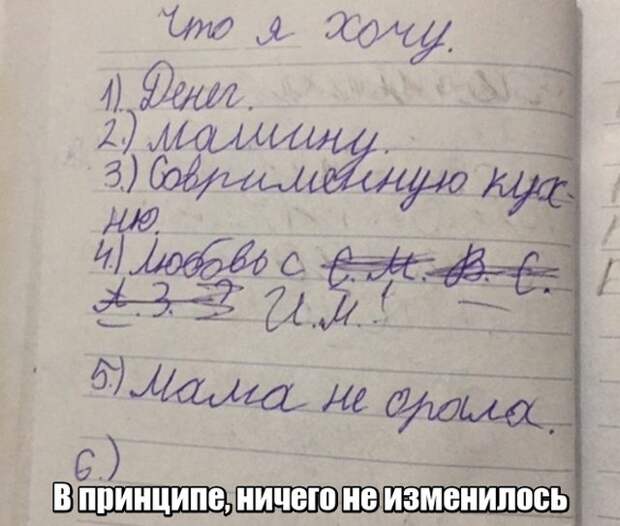 Что я хочу.
1) Денег.
2.) Машину.
3.) Совриминную кух-
ню.
4.) Любовь с С. М. В. С.
А. З. И.М.!
5.) Мама не орала.
6.)
В принципе, ничего не изменилось